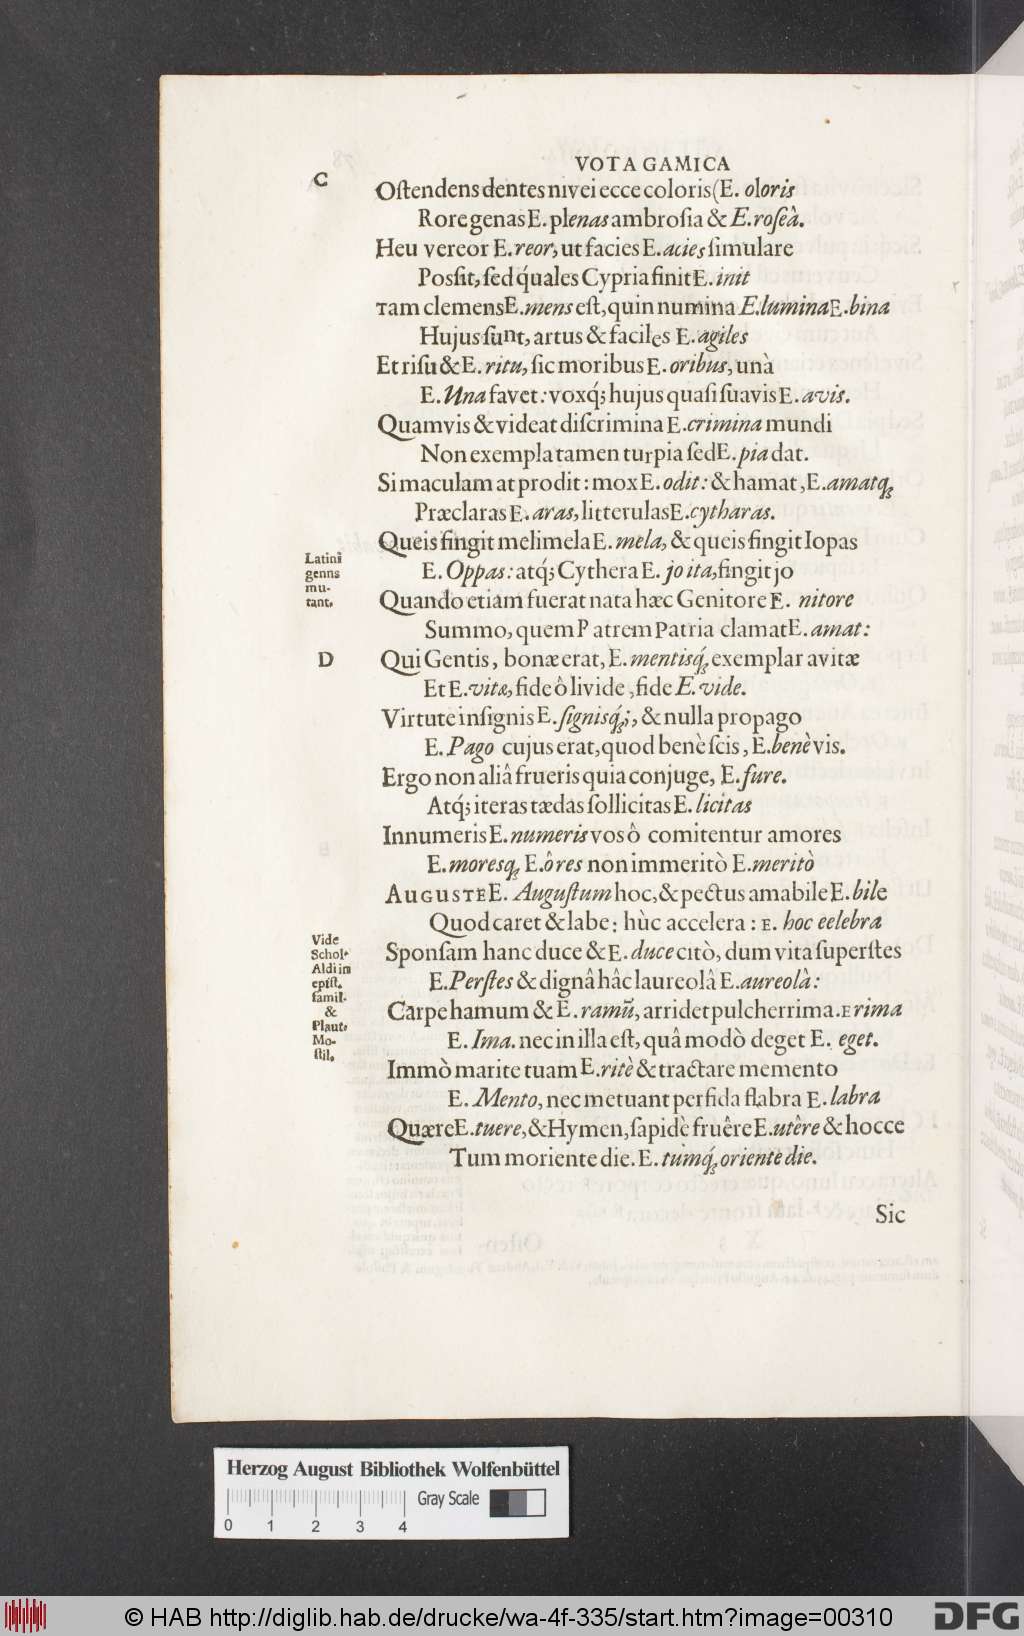 VOTA GAMICA
C
Oſtendens dentes nivei ecce coloris (E. oloris
Rore genas E. plenas ambroſia & E. roſeâ.
Heu vereor E. reor, ut facies E. acies ſimulare
Poſſit, ſed q́uales Cypria finit E. init
Tam clemens E. mens eſt, quin numina E. lumina E. bina
Hujus ſunt, artus & faciles E. agiles
Et riſu & E. ritu, ſic moribus E. oribus, unà
E. Una favet: voxq́; hujus quaſi ſuavis E. avis.
Quamvis & videat diſcrimina E. crimina mundi
Non exempla tamen turpia ſed E. pia dat.
Si maculam at prodit: mox E. odit: & hamat, E. amatq́;
Præclaras E. aras, litterulas E. cytharas.
Queis fingit melimela E. mela, & queis fingit Iopas
Latini
genus
mu-
tant.
E. Oppas: atq́; Cythera E. jo ita, fingit jo
Quando etiam fuerat nata hæc Genitore E. nitore
Summo, quem Patrem Patria clamat E. amat:
D
Qui Gentis, bonæ erat, E. mentisq́; exemplar avitæ
Et E. vitæ, fide ô livide, fide E. vide.
Virtute inſignis E. ſignisq́;, & nulla propago
E. Pago cujus erat, quod benè ſcis, E. benè vis.
Ergo non aliâ frueris quia conjuge, E. fure.
Atq́; iteras tædas ſollicitas E. licitas
Innumeris E. numeris vos ô comitentur amores
E. moresq́; E. ôres non immeritò E. meritò
AUGUSTE E. Auguſtum hoc, & pectus amabile E. bile
Quod caret & labe: hùc accelera: E. hoc eelebra
Vide
Schol.
Aldi in
epiſt.
famil.
&
Plaut.
Mo-
ſtil.
Sponſam hanc duce & E. duce citò, dum vita ſuperſtes
E. Perſtes & dignâ hâc laureolâ E. aureolâ:
Carpe hamum & E. ramū, arridet pulcherrima. E rima
E. Ima. nec in illa eſt, quâ modò deget E. eget.
Immò marite tuam E. ritè & tractare memento
E. Mento, nec metuant perfida flabra E. labra
Quære E. tuere, & Hymen, ſapidè fruêre E. utêre & hocce
Tum moriente die. E. tumq́; oriente die.
Sic
Herzog August Bibliothek Wolfenbüttel
Gray Scale
0 1 2 3 4
© HAB http://diglib.hab.de/drucke/wa-4f-335/start.htm?image=00310
DFG